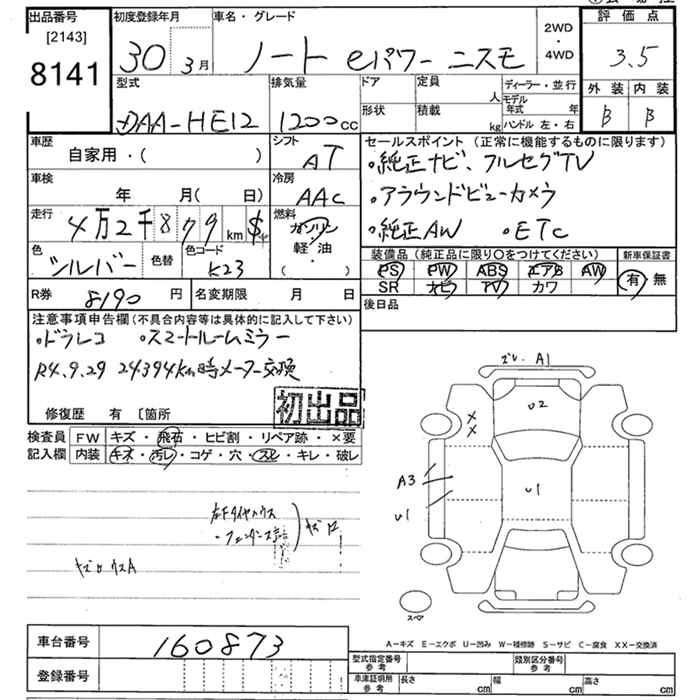 出品番号
[2143]
8141
初度登録年月
30 3月
車名・グレード
ノート eパワー ニスモ
2WD
・
4WD
評価点
3.5
外装 内装
B B
型式
DAA-HE12
排気量
1200cc
ドア 定員 人
形状 積載 kg
ディーラー・並行
モデル年式 年
ハンドル 左・右
車歴
自家用・( )
シフト
AT
車検
年 月( 日)
冷房
AAC
走行
4万2千879km
燃料
ガソリン
軽・油
( )
色
シルバー
色替
色コード
K23
R券
8190円
名変期限 月 日
セールスポイント(正常に機能するものに限ります)
・純正ナビ、フルセグTV
・アラウンドビューカメラ
・純正AW ・ETC
装備品(純正品に限り○をつけてください)
新車保証書
PS PW ABS エアB AW
SR ナビ TV カワ
有・無
後日品
注意事項申告欄(不具合内容等は具体的に記入して下さい)
・ドラレコ ・スマートルームミラー
R4.9.29 24394km時メーター交換
修復歴 有 〔箇所
初出品
検査員 FW キズ・飛石・ヒビ割・リペア跡・×要
記入欄 内装 キズ・汚レ・コゲ・穴・スレ・キレ・破レ
左Fタイヤハウス
・フェンダー
ズレ A1
U2
××
A3
U1
U1
スペア
A-キズ E-エクボ U-凹み W-補修跡 S-サビ C-腐食 XX-交換済
車台番号
160873
登録番号
型式指定番号
参考
類別区分番号
参考
車庫証明用
参考
長さ cm 幅 cm 高さ cm